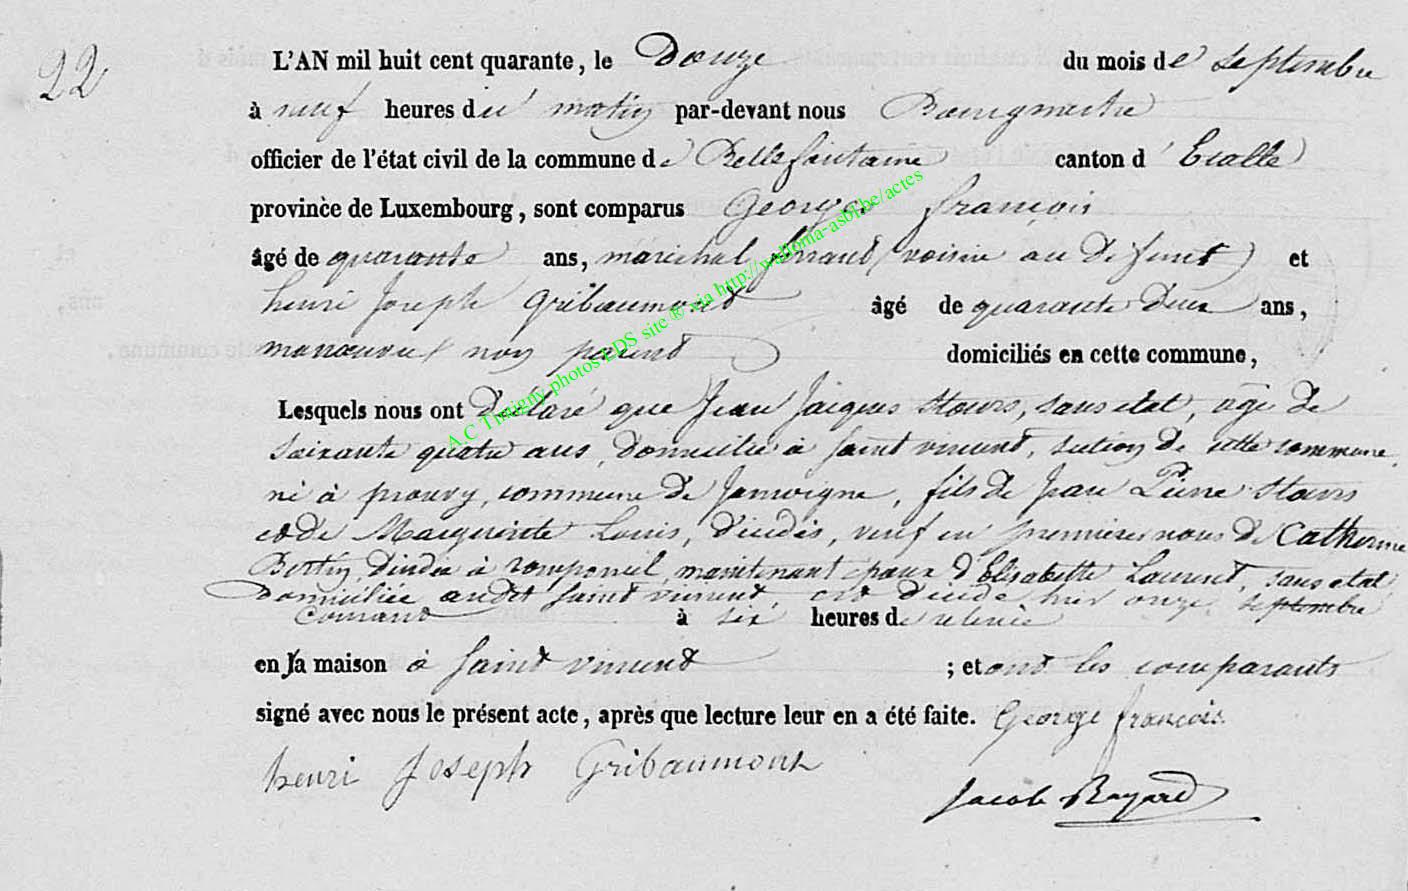 22
L'AN mil huit cent quarante, le Douze du mois de septembre
à neuf heures du matin par-devant nous Bourgmestre
officier de l'état civil de la commune de Bellefontaine canton d'Etalle
province de Luxembourg, sont comparus George françois
âgé de quarante ans, maréchal ferrant (voisin au defunt) et
henri Joseph Gribaumont âgé de quarante deux ans,
manoeuvre non parent domiciliés en cette commune,
Lesquels nous ont declaré que Jean Jacques Stours, sans etat, agé de
soixante quatre ans, domicilié à Saint vincent, section de cette commune,
né à prouvy, commune de Jamoigne, fils de Jean Pierre Stours
et de Marguerite Louis, décédés, veuf en premieres noces de Catherine
Bertin, décédée à romponcel, maintenant epoux d'Elisabette Laurent, sans etat
domiciliée audit Saint vincent, est décédé hier onze septembre
courant à six heures de relevée
en la maison à Saint vincent ; et ont les comparants
signé avec nous le présent acte, après que lecture leur en a été faite. George françois
henri Joseph Gribaumont
Jacob Bayard
A.C Tintigny photos EDS site ® via http://wallonia-asbl.be/actes